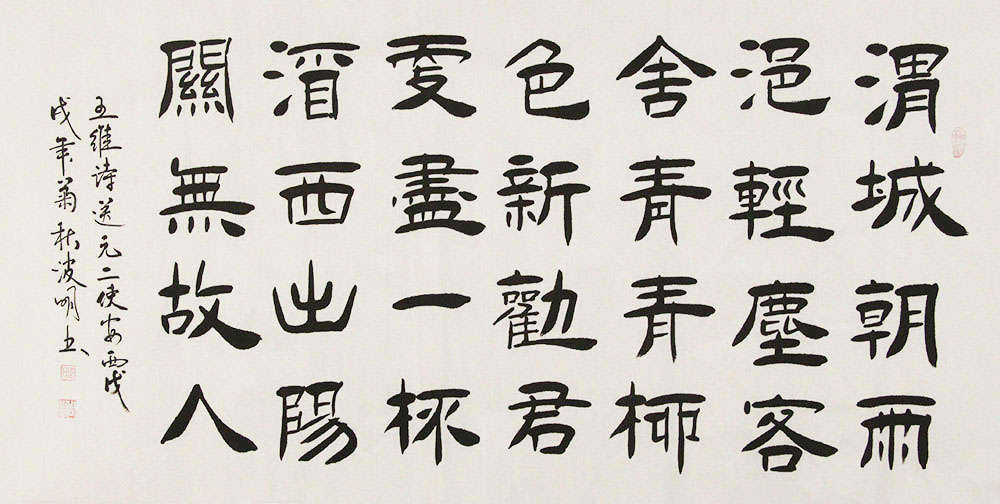 渭城朝雨
浥輕塵客
舍青青柳
色新勸君
更盡一杯
酒西出陽
關無故人
王維詩送元二使安西戊
戌年菊秋波明书